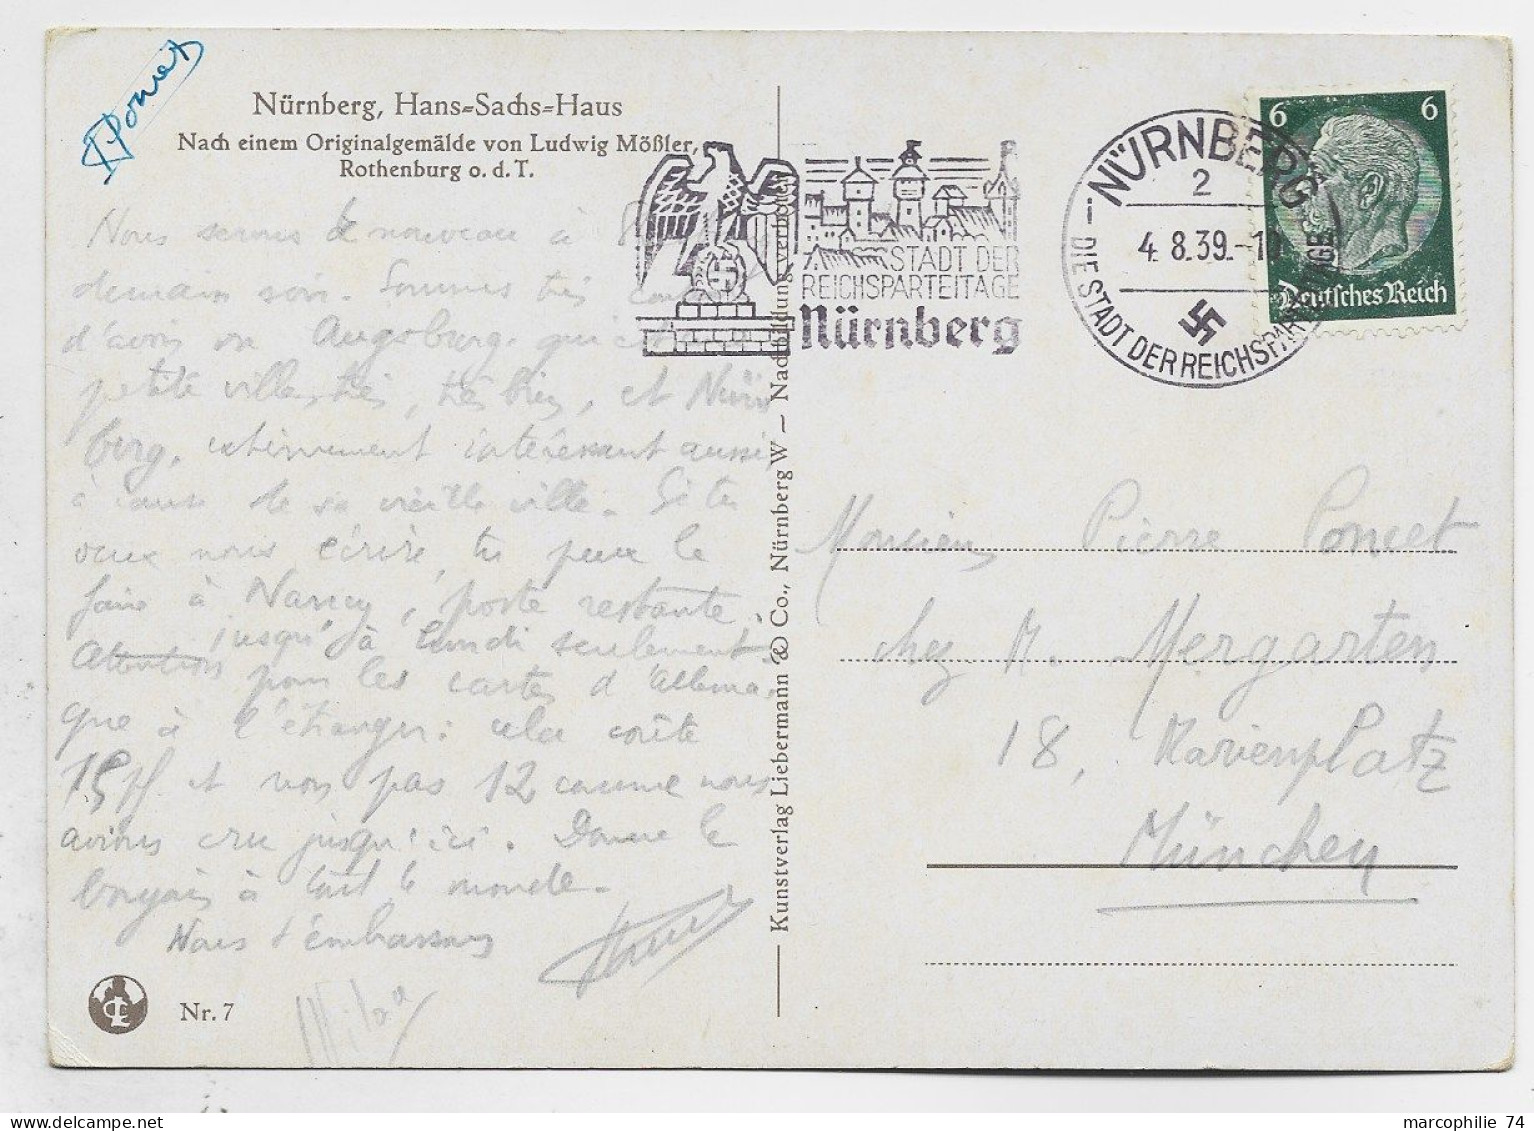 Poncet
Nürnberg, Hans-Sachs-Haus
Nach einem Originalgemälde von Ludwig Mößler,
Rothenburg o. d. T.
Nous serons de nouveau à
demain soir. Sommes très
d'avoir vu Augsburg, qui est
petite ville très, très bien, et Nürn
berg, extrêmement intéressant aussi
à cause de sa vieille ville. Si tu
veux nous écrire, tu peux le
faire à Nancy, poste restante,
jusqu'à lundi seulement.
Attention pour les cartes d'Allema
gne à l'étranger: cela coûte
15 pf et non pas 12 comme nous
avions cru jusqu'ici. Donne le
bonjour à tout le monde.
Nous t'embrassons
Nr. 7
Kunstverlag Liebermann & Co., Nürnberg W — Nachbildung verboten
STADT DER
REICHSPARTEITAGE
Nürnberg
NÜRNBERG
2
4.8.39.-10
DIE STADT DER REICHSPARTEITAGE
6 6
Deutsches Reich
Monsieur Pierre Poncet
chez M. Mergarten
18, Marienplatz
München
marcophilie 74